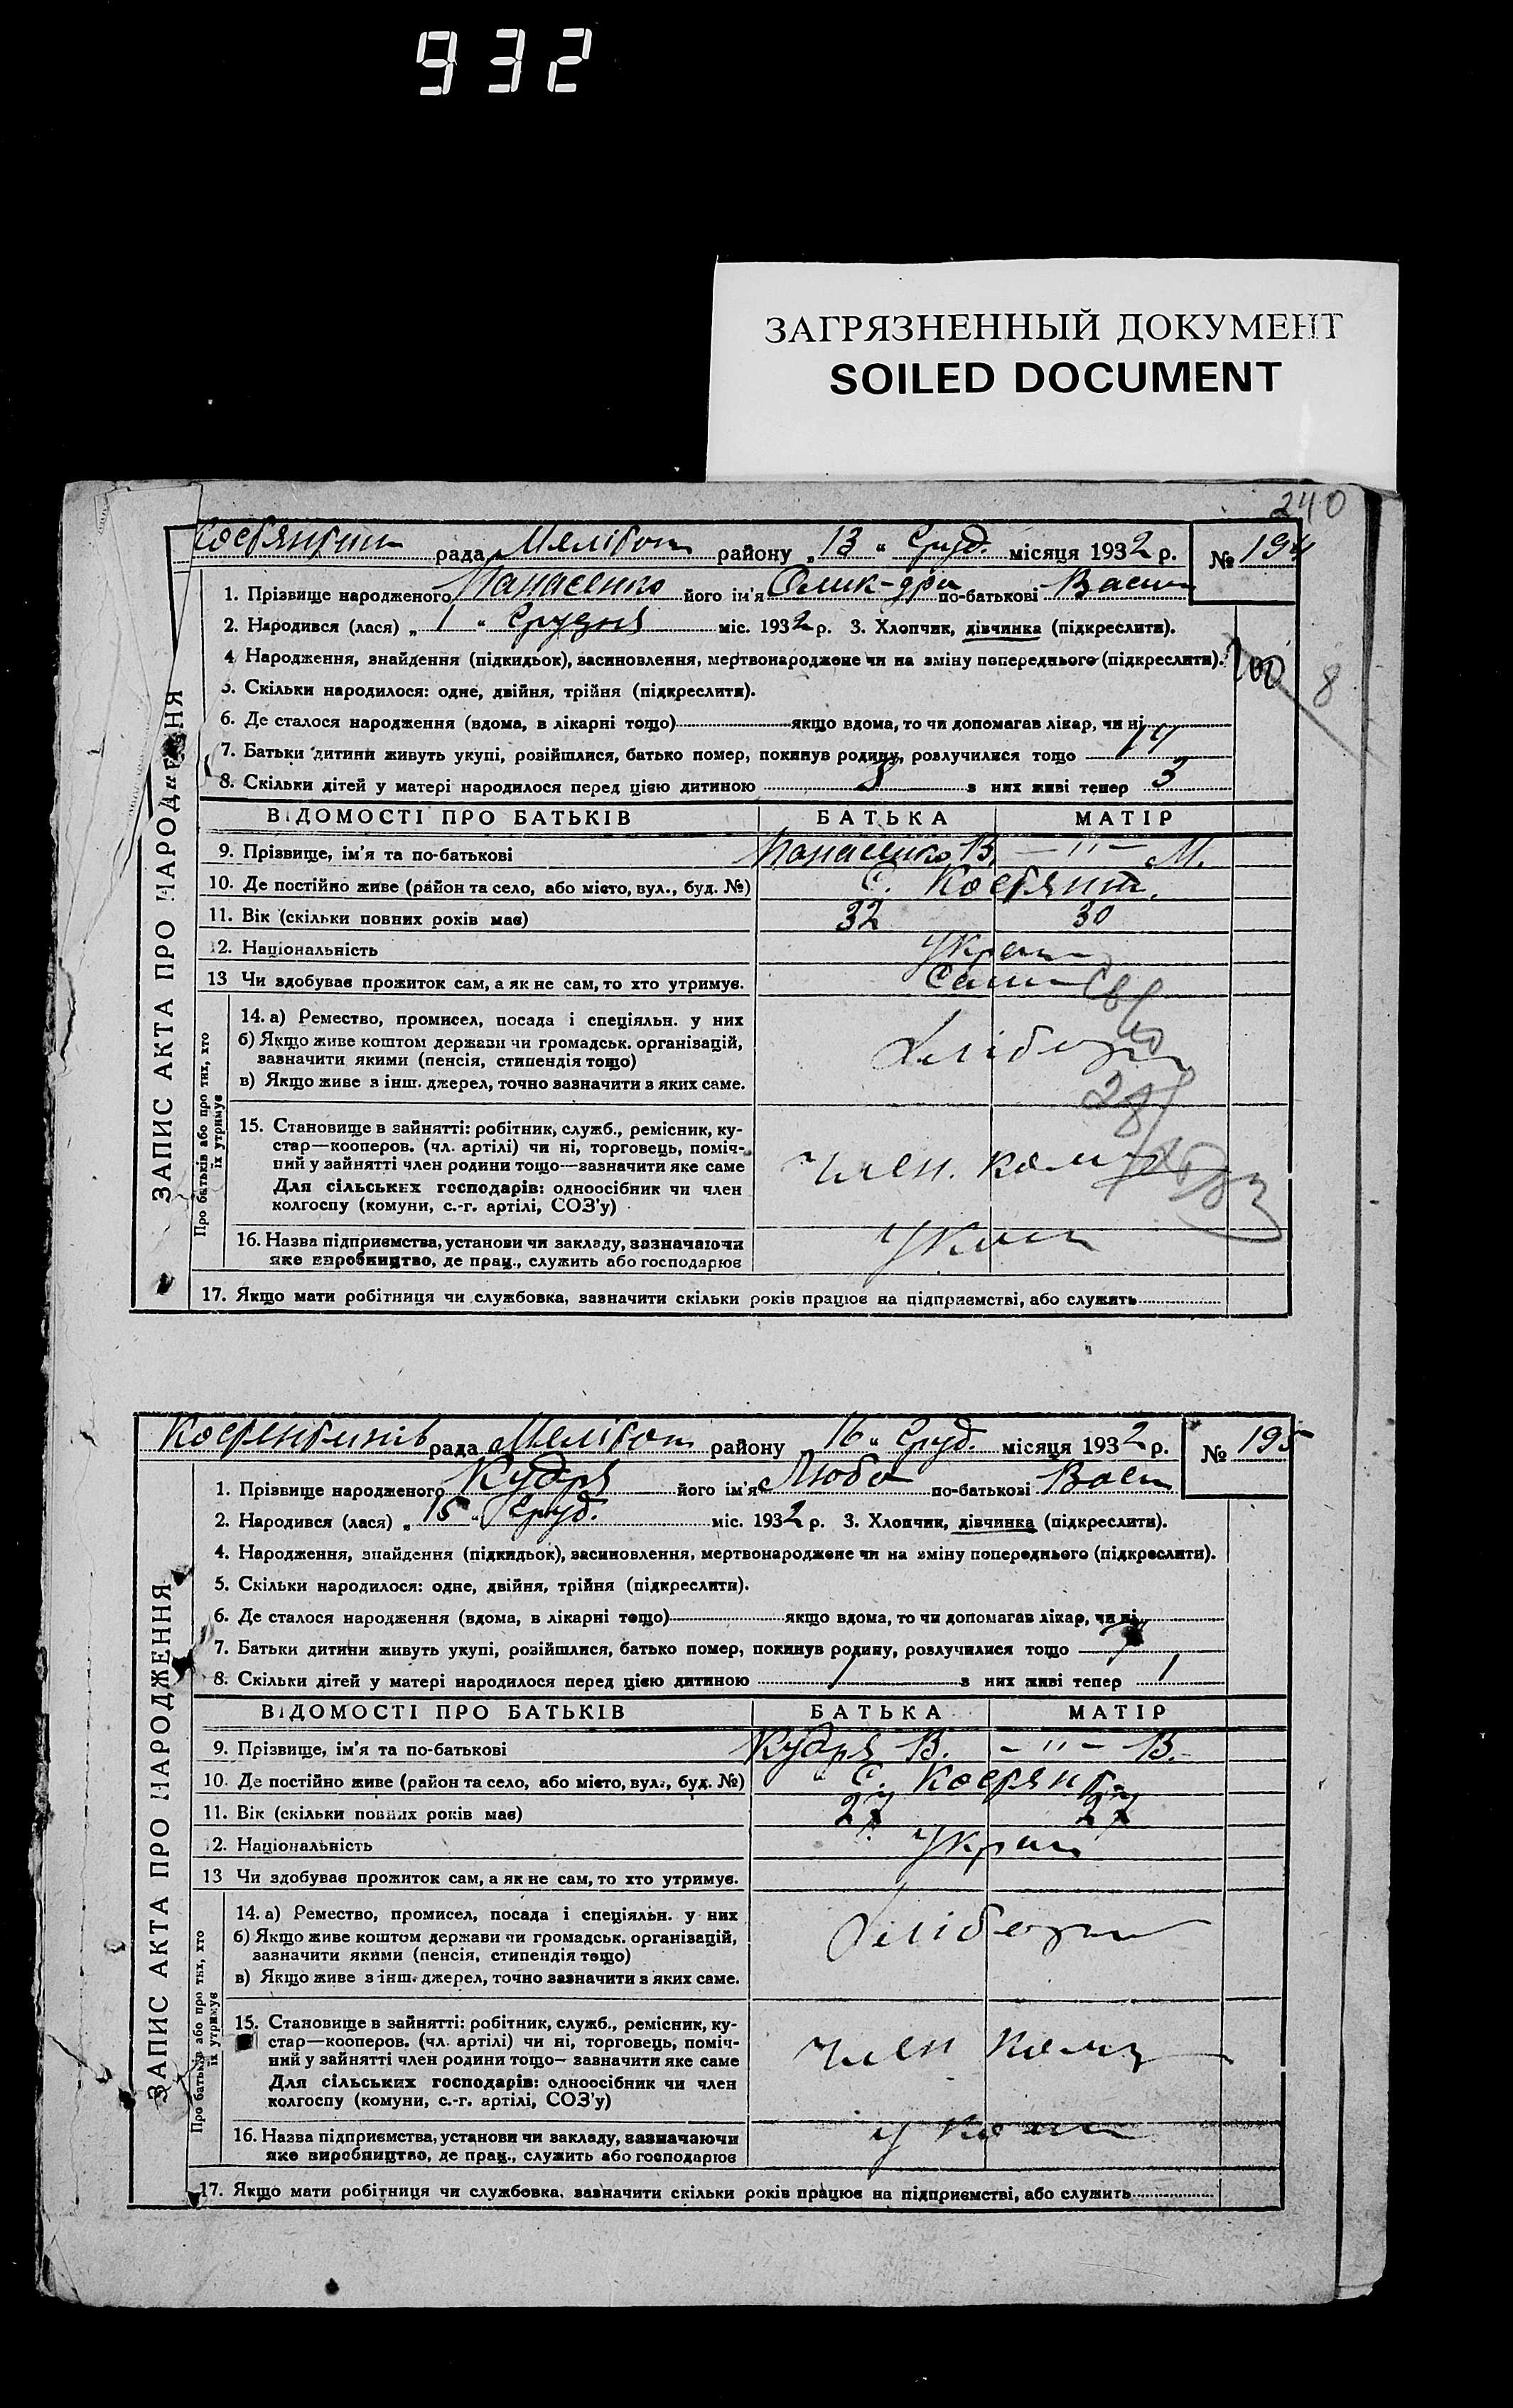 932
ЗАГРЯЗНЕННЫЙ ДОКУМЕНТ
SOILED DOCUMENT
240
рада Меліton району „13“ Груд. місяця 1932 р. № 194
1. Прізвище народженого Панасенко його ім'я Олик-дри по-батькові Васил
2. Народився (лася) „1“ Грудня міс. 1932 р. 3. Хлопчик, дівчинка (підкреслити).
4. Народження, знайдення (підкидьок), засиновлення, мертвонароджене чи на зміну попереднього (підкреслити).
8
5. Скільки народилося: одне, двійня, трійня (підкреслити).
6. Де сталося народження (вдома, в лікарні тощо) якщо вдома, то чи допомагав лікар, чи ні
7. Батьки дитини живуть укупі, розійшлися, батько помер, покинув родину, розлучилися тощо
8. Скільки дітей у матері народилося перед цією дитиною з них живі тепер 3
ЗАПИС АКТА ПРО НАРОДЖЕННЯ
ВІДОМОСТІ ПРО БАТЬКІВ БАТЬКА МАТІР
9. Прізвище, ім'я та по-батькові Панасенко В. — " — М.
10. Де постійно живе (район та село, або місто, вул., буд. №) С. Костянт.
11. Вік (скільки повних років має) 32 30
12. Національність Україн
13 Чи здобуває прожиток сам, а як не сам, то хто утримує. Сам
Про батьків або про тих, хто їх утримує
14. а) Ремество, промисел, посада і спеціяльн. у них
б) Якщо живе коштом держави чи громадськ. організацій,
зазначити якими (пенсія, стипендія тощо)
в) Якщо живе з інш. джерел, точно зазначити з яких саме.
Хлібороб
15. Становище в зайнятті: робітник, служб., ремісник, ку-
стар—кооперов. (чл. артілі) чи ні, торговець, поміч-
ний у зайнятті член родини тощо—зазначити яке саме
Для сільських господарів: одноосібник чи член
колгоспу (комуни, с.-г. артілі, СОЗ'у)
член.
16. Назва підприємства, установи чи закладу, зазначаючи
яке виробництво, де прац., служить або господарює
17. Якщо мати робітниця чи службовка, зазначити скільки років працює на підприємстві, або служить
рада району 16 „ Груд. місяця 1932 р. № 195
1. Прізвище народженого Кудря його ім'я Люба по-батькові Васил
2. Народився (лася) „15“ Груд. міс. 1932 р. 3. Хлопчик, дівчинка (підкреслити).
4. Народження, знайдення (підкидьок), засиновлення, мертвонароджене чи на зміну попереднього (підкреслити).
5. Скільки народилося: одне, двійня, трійня (підкреслити).
6. Де сталося народження (вдома, в лікарні тощо) якщо вдома, то чи допомагав лікар, чи ні
7. Батьки дитини живуть укупі, розійшлися, батько помер, покинув родину, розлучилися тощо
8. Скільки дітей у матері народилося перед цією дитиною 1 з них живі тепер 1
ЗАПИС АКТА ПРО НАРОДЖЕННЯ
ВІДОМОСТІ ПРО БАТЬКІВ БАТЬКА МАТІР
9. Прізвище, ім'я та по-батькові Кудря В. — " — В.
10. Де постійно живе (район та село, або місто, вул., буд. №) С. Костянт.
11. Вік (скільки повних років має) 27 27
12. Національність Україн
13 Чи здобуває прожиток сам, а як не сам, то хто утримує.
Про батьків або про тих, хто їх утримує
14. а) Ремество, промисел, посада і спеціяльн. у них
б) Якщо живе коштом держави чи громадськ. організацій,
зазначити якими (пенсія, стипендія тощо)
в) Якщо живе з інш. джерел, точно зазначити з яких саме.
Хлібороб
15. Становище в зайнятті: робітник, служб., ремісник, ку-
стар—кооперов. (чл. артілі) чи ні, торговець, поміч-
ний у зайнятті член родини тощо— зазначити яке саме
Для сільських господарів: одноосібник чи член
колгоспу (комуни, с.-г. артілі, СОЗ'у)
член
16. Назва підприємства, установи чи закладу, зазначаючи
яке виробництво, де прац., служить або господарює
17. Якщо мати робітниця чи службовка, зазначити скільки років працює на підприємстві, або служить